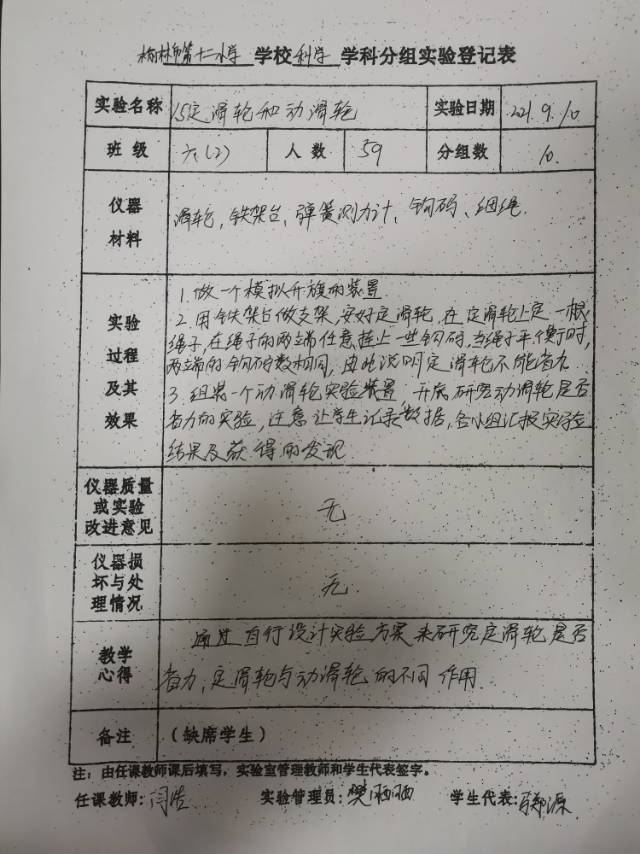 榆林市第十二小学 学校 科学 学科分组实验登记表
实验名称 15定滑轮和动滑轮 实验日期 2021.9.10
班级 六(2) 人数 59 分组数 10.
仪器材料 滑轮、铁架台、弹簧测力计、钩码、细绳.
实验过程及其效果
1.做一个模拟升旗的装置
2.用铁架台做支架,安好定滑轮,在定滑轮上定一根
绳子,在绳子的两端任意挂上一些钩码,当绳子平衡时,
两端的钩码数相同,由此说明定滑轮不能省力.
3.组装一个动滑轮实验装置,开展研究动滑轮是否
省力的实验,注意让学生记录数据,各小组汇报实验
结果及获得的发现.
仪器质量或实验改进意见 无
仪器损坏与处理情况 无.
教学心得 通过自行设计实验方案来研究定滑轮是否
省力,定滑轮与动滑轮的不同作用.
备注 (缺席学生)
注:由任课教师课后填写,实验室管理教师和学生代表签字。
任课教师:闫浩 实验管理员:樊晒晒 学生代表:源